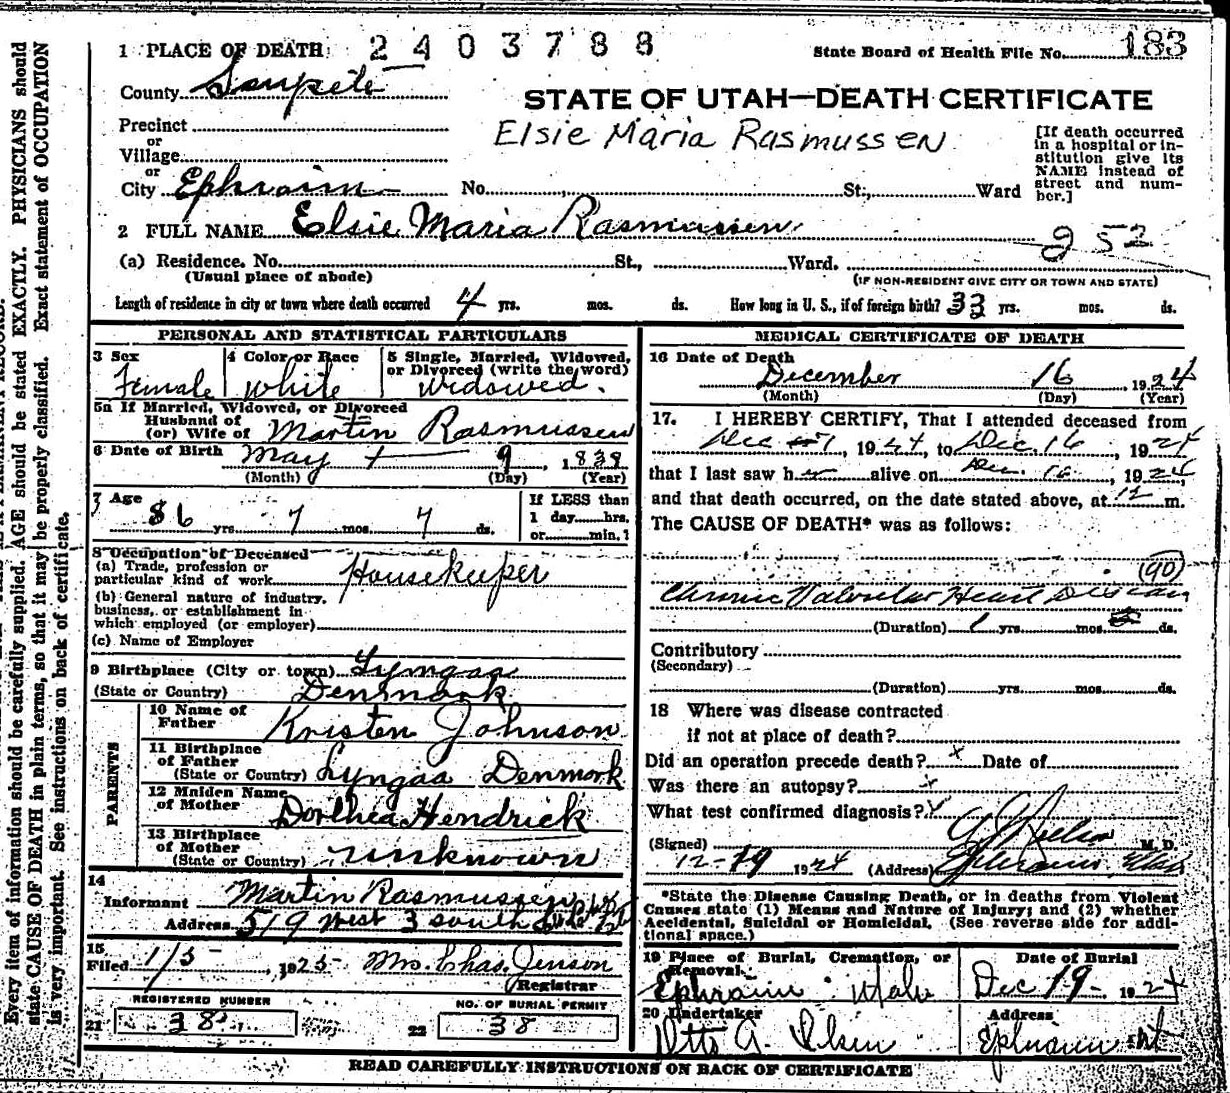 Every item of information should be carefully supplied. AGE should be stated EXACTLY. PHYSICIANS should
state CAUSE OF DEATH in plain terms, so that it may be properly classified. Exact statement of OCCUPATION
is very important. See instructions on back of certificate.
1 PLACE OF DEATH 2403788 State Board of Health File No. 183
County Sanpete
STATE OF UTAH—DEATH CERTIFICATE
Precinct
or
Village
or
City Ephraim No. St., Ward
Elsie Maria Rasmussen
[If death occurred
in a hospital or in-
stitution give its
NAME instead of
street and num-
ber.]
2 FULL NAME Elsie Maria Rasmussen
252
(a) Residence. No. St., Ward.
(Usual place of abode) (IF NON-RESIDENT GIVE CITY OR TOWN AND STATE)
Length of residence in city or town where death occurred 4 yrs. mos. ds. How long in U. S., if of foreign birth? 33 yrs. mos. ds.
PERSONAL AND STATISTICAL PARTICULARS
3 Sex 4 Color or Race 5 Single, Married, Widowed,
or Divorced (write the word)
Female White Widowed.
5a If Married, Widowed, or Divorced
Husband of
(or) Wife of Martin Rasmussen
6 Date of Birth May 9, 1838
(Month) (Day) (Year)
7 Age 86 yrs. 7 mos. 7 ds.
If LESS than
1 day hrs.
or min.?
8 Occupation of Deceased
(a) Trade, profession or
particular kind of work Housekeeper
(b) General nature of industry,
business, or establishment in
which employed (or employer)
(c) Name of Employer
9 Birthplace (City or town) Lyngaa
(State or Country) Denmark
PARENTS
10 Name of
Father Kristen Johnson
11 Birthplace
of Father
(State or Country) Lyngaa Denmark
12 Maiden Name
of Mother Dorthea Hendrick
13 Birthplace
of Mother
(State or Country) unknown
14
Informant Martin Rasmussen
Address 519 West 3 South
15
Filed 1/5, 1925 Mrs. Chas. Jenson
Registrar
REGISTERED NUMBER NO. OF BURIAL PERMIT
21 38 22 38
MEDICAL CERTIFICATE OF DEATH
16 Date of Death
December 16, 1924
(Month) (Day) (Year)
17. I HEREBY CERTIFY, That I attended deceased from
Dec 7, 1924, to Dec. 16, 1924
that I last saw her alive on Dec. 16, 1924,
and that death occurred, on the date stated above, at 12 m.
The CAUSE OF DEATH* was as follows:
(90)
Chronic Valvular Heart Disease
(Duration) 1 yrs. mos. ds.
Contributory
(Secondary)
(Duration) yrs. mos. ds.
18 Where was disease contracted
if not at place of death?
Did an operation precede death? x Date of
Was there an autopsy? x
What test confirmed diagnosis?
(Signed) M. D.
12-19 1924 (Address) Ephraim, Utah
*State the Disease Causing Death, or in deaths from Violent
Causes state (1) Means and Nature of Injury; and (2) whether
Accidental, Suicidal or Homicidal. (See reverse side for addi-
tional space.)
19 Place of Burial, Cremation, or
Removal. Date of Burial
Ephraim Utah Dec 19- 1924
20 Undertaker Address
Otto A. Olsen Ephraim Ut
READ CAREFULLY INSTRUCTIONS ON BACK OF CERTIFICATE